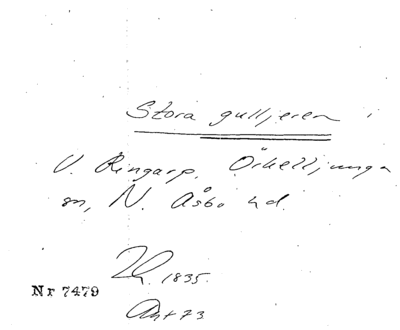 Stora gulljeren i
V. Ringarp, Örkelljunga
sn, N. Åsbo hd.
1835.
Nr 7479
Ant 73